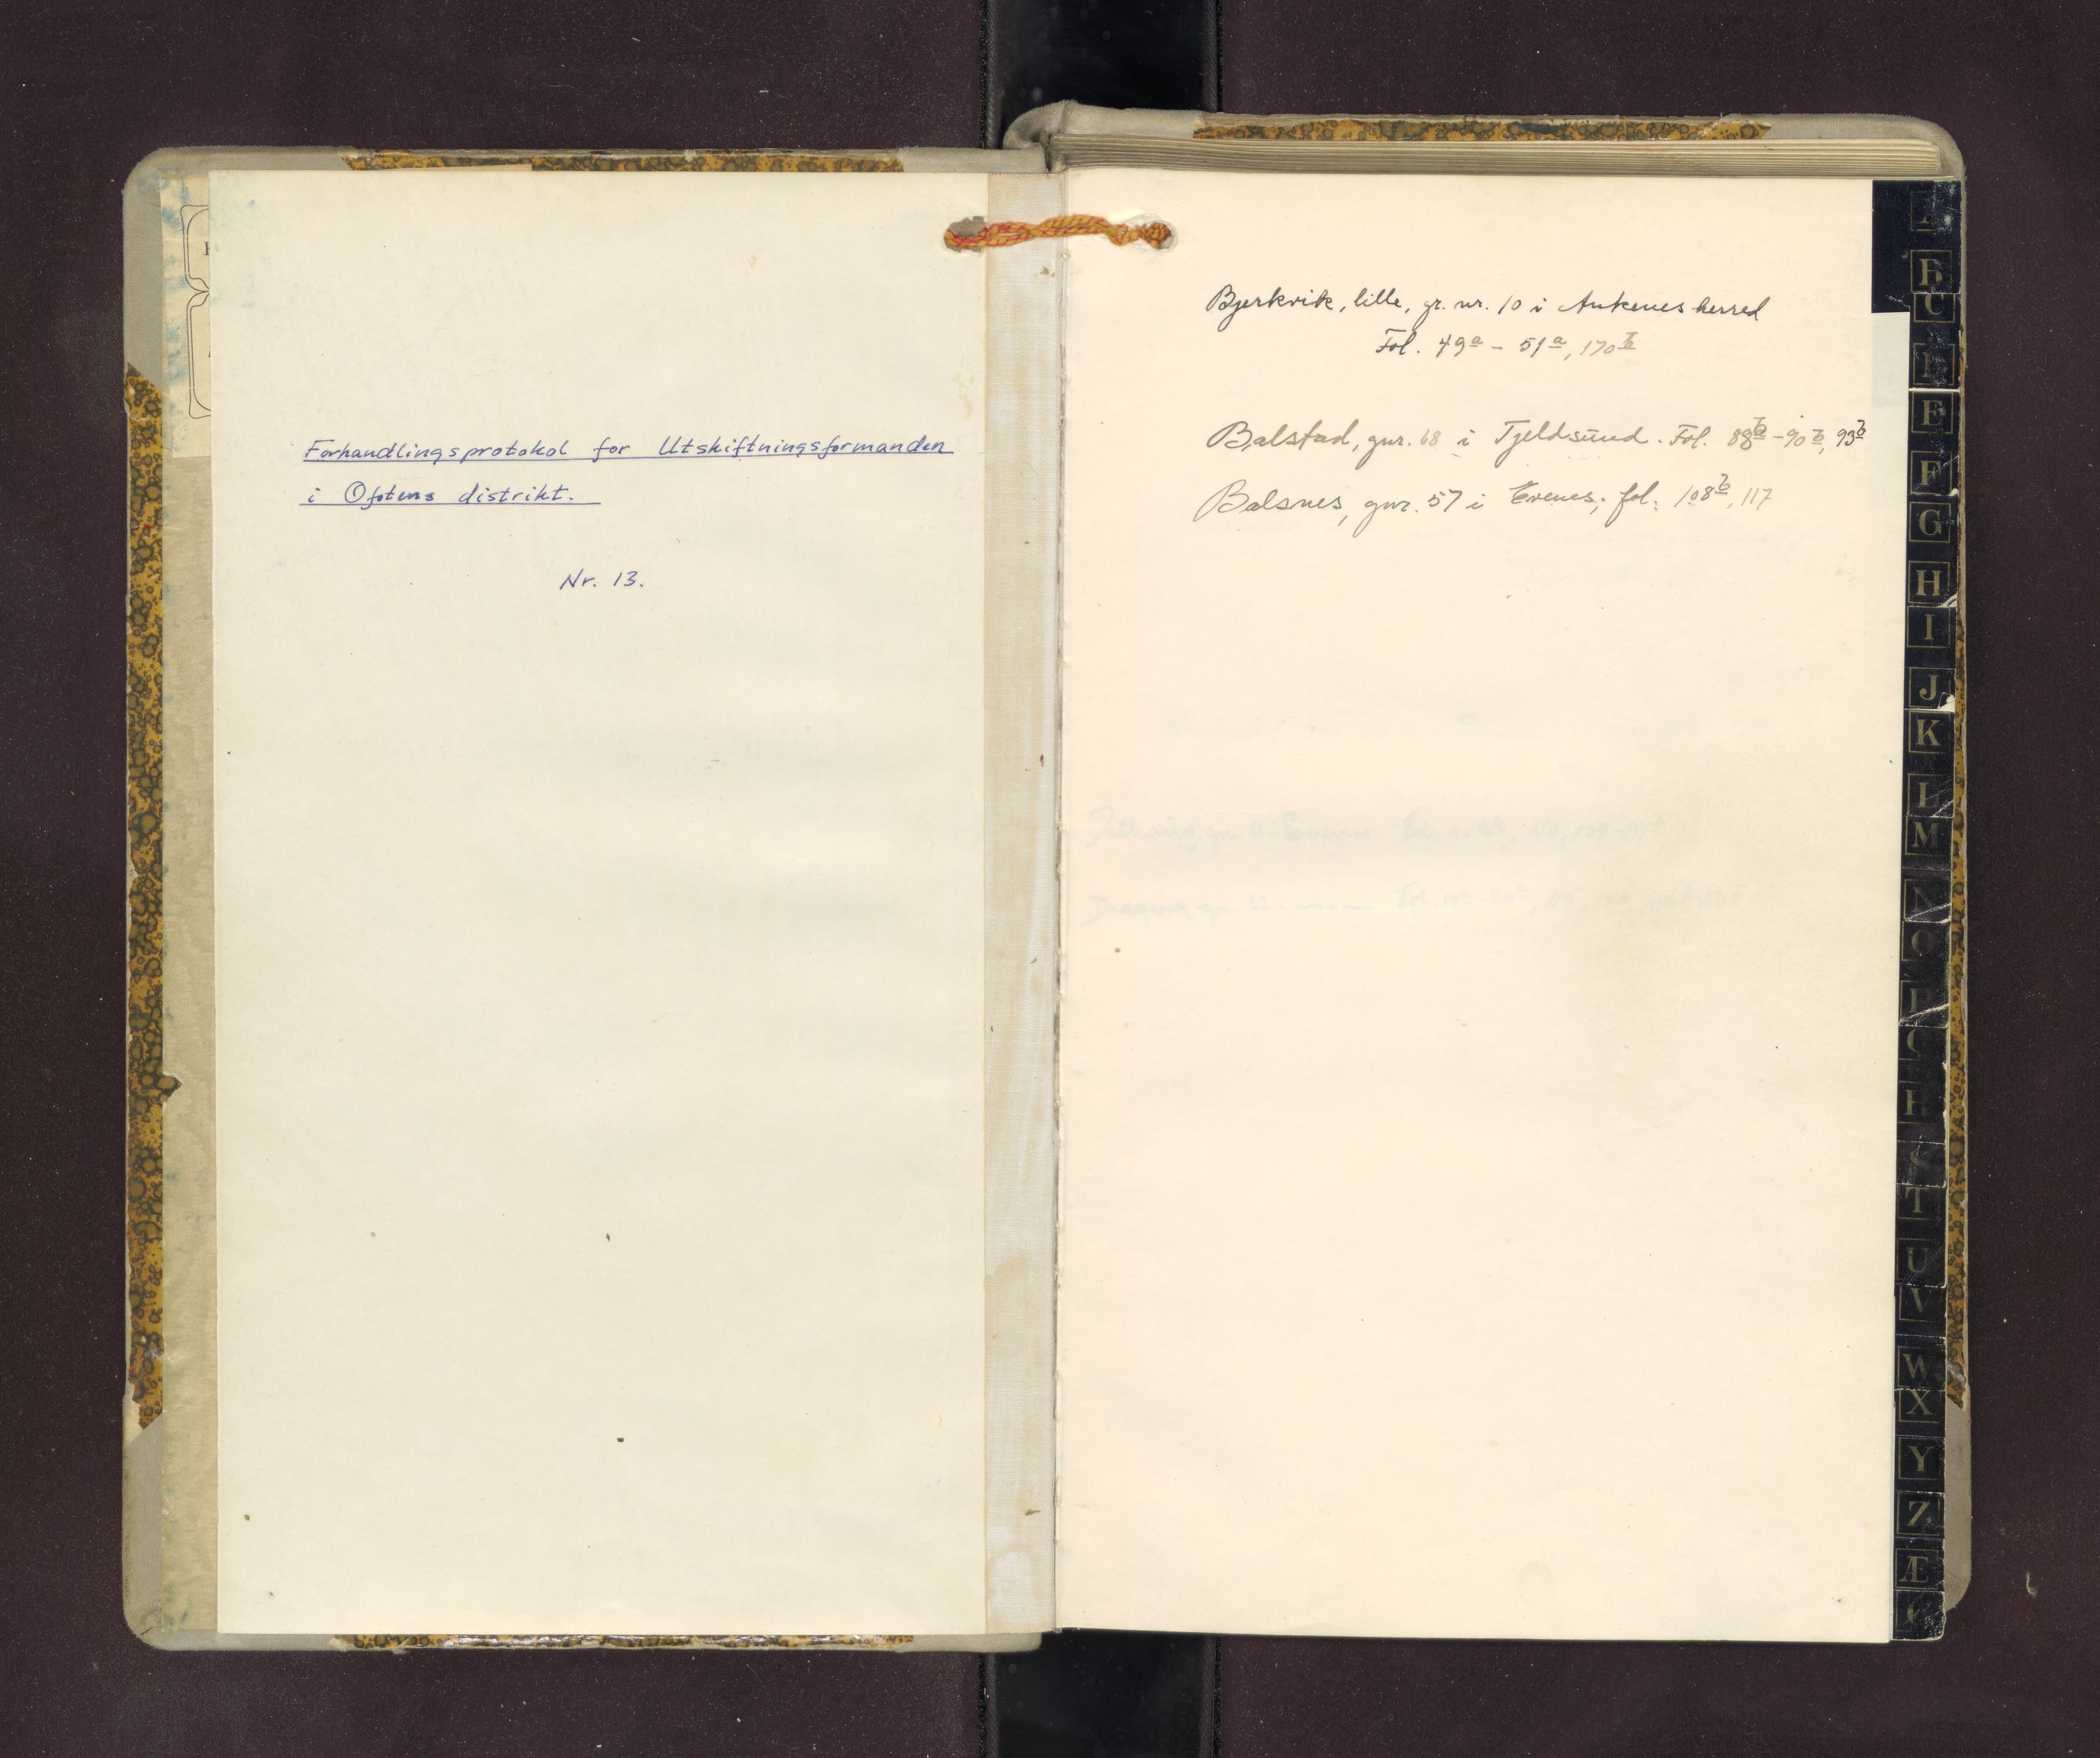 Forhandlingsprotokol for Utskiftningsformanden
i Ofotens distrikt.
Nr. 13.
Bjerkvik, lille, gr. nr. 10 i Ankenes herred
Fol. 49a - 51a, 170b
Balstad, gnr. 68 i Tjeldsund. Fol. 88b - 90b, 93b
Balsnes, gnr. 57 i Evenes, fol. 108b, 117
A
B
C
E
F
G
H
I
J
K
L
M
N
O
P
R
S
T
U
V
W
X
Y
Z
Æ